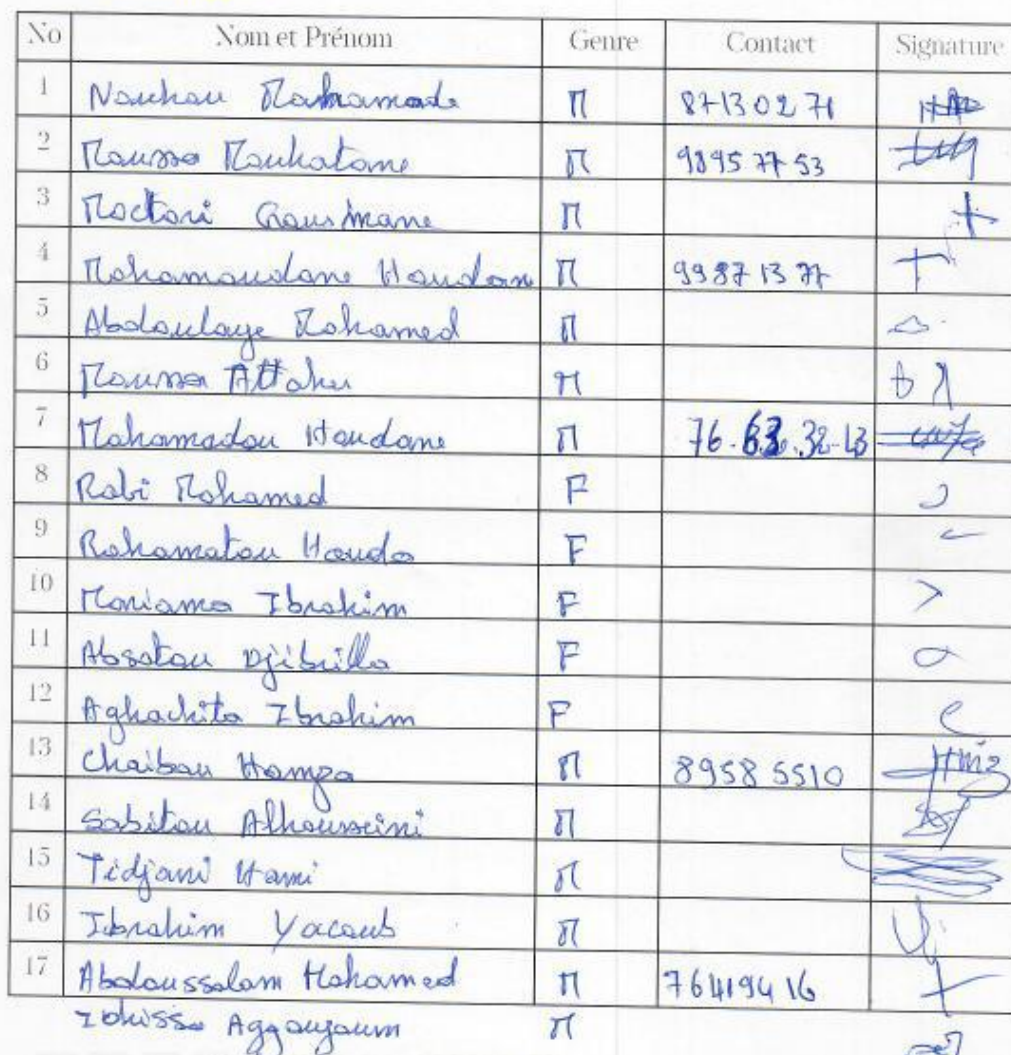 No Nom et Prénom Genre Contact Signature
1 Nouhou Mahamade M 87130271
2 Moussa Mouhatane M 98957753
3 Moctari Gousmane M
4 Mohamoudane Houdan M 99871377
5 Abdoulaye Mohamed M
6 Moussa Attaher M
7 Mahamadou Houdane M 76.63.32-13
8 Rabi Mohamed F
9 Rahamatou Houda F
10 Mariama Ibrahim F
11 Absatou Djibrilla F
12 Aghachita Ibrahim F
13 Chaibou Hamza M 89585510
14 Sabitou Alhousseini M
15 Tidjani Hami M
16 Ibrahim Yacoub M
17 Abdoussalam Mohamed M 76419416
Aggouzoum M